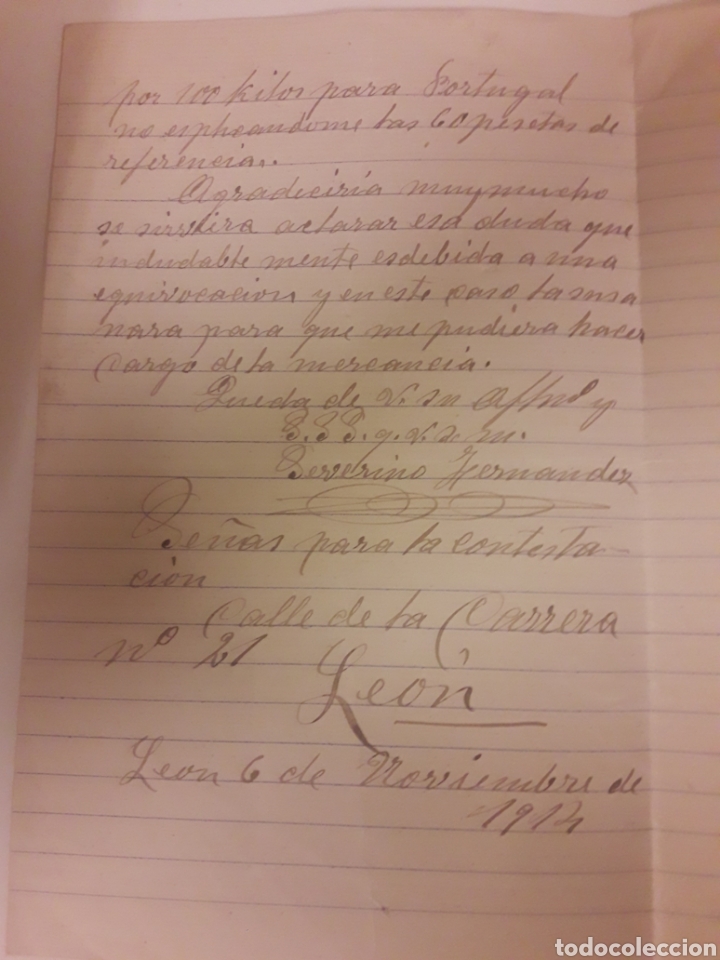 por 100 kilos para Portugal
no esplicandome las 60 pesetas de
referencia.
Agradeciria muy mucho
se sirviera aclarar esa duda que
indudable mente es debida a una
equivocacion y en este caso la susa
nara para que me pudiera hacer
cargo de la mercancia.
Queda de V. su Affmo y
S.S.S. q. v. s. m.
Severino Hernandez
Señas para la contesta-
cion
Calle de la Carrera
nº 21
León
Leon 6 de Noviembre de
todocoleccion